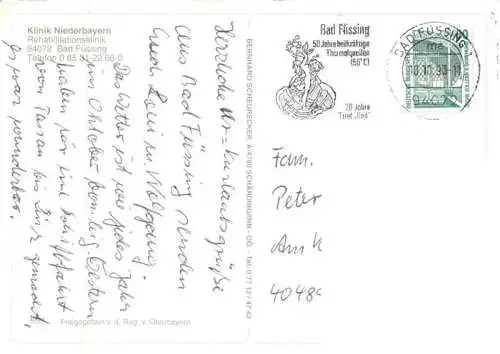 Klinik Niederbayern
Rehabilitationsklinik
94072 Bad Füssing
Telefon 0 85 31-22 66-0
Herzliche Urlaubsgrüße
aus Bad Füssing senden
Euch Loni und Wolfgang.
Das Wetter ist wie jedes Jahr
im Oktober Gestern
haben wir eine Schiffahrt
von Passau bis Linz gemacht,
es war wunderbar.
Freigegeben v. d. Reg. v. Oberbayern
BERNHARD SCHEURECKER, A-4780 SCHÄRDING/INN - OÖ - Tel. 0 77 12 / 47 43
Bad Füssing
50 Jahre heilkräftige
Thermalquellen
(56°C)
20 Jahre
Titel „Bad“
BAD FÜSSING
94072
Fam.
Peter
Am
4048